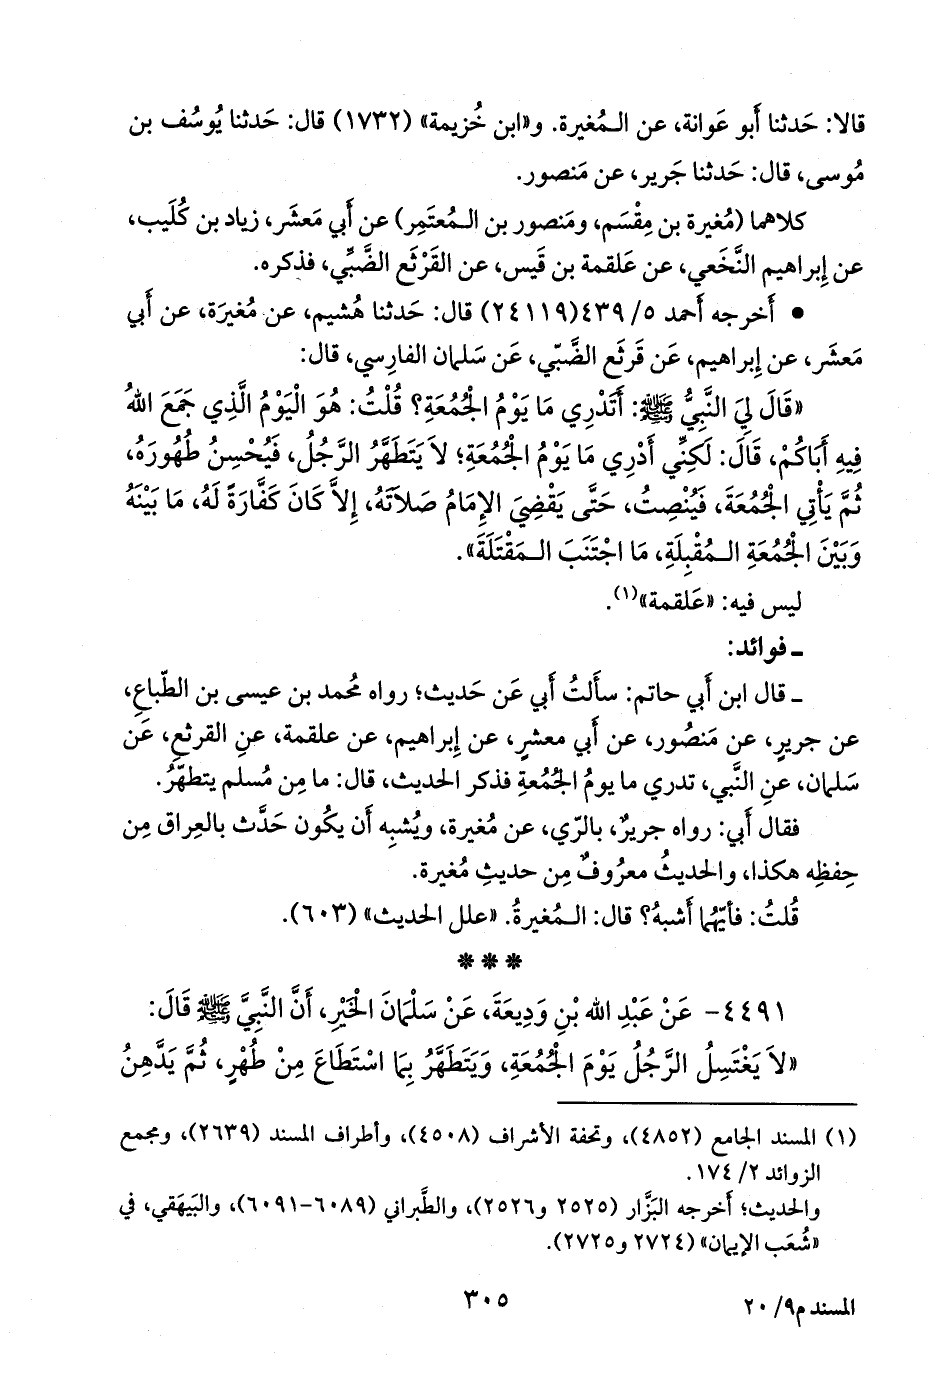 قالا: حَدثنا أَبو عَوانة، عن الـمُغيرة. و«ابن خُزيمة» (١٧٣٢) قال: حَدثنا يُوسُف بن
مُوسى، قال: حَدثنا جَرير، عن مَنصور.
كلاهما (مُغيرة بن مِقْسَم، ومَنصور بن الـمُعتَمِر) عن أَبي مَعشَر، زياد بن كُلَيب،
عن إِبراهيم النَّخَعي، عن عَلقمة بن قَيس، عن القَرْثَع الضَّبِّي، فذكره.
• أَخرجه أَحمد ٥/ ٤٣٩(٢٤١١٩) قال: حَدثنا هُشيم، عن مُغيرَة، عن أَبي
مَعشَر، عن إِبراهيم، عَن قَرثَع الضَّبّي، عَن سَلمان الفارِسي، قال:
«قَالَ لِيَ النَّبِيُّ ﷺ: أَتَدْرِي مَا يَوْمُ الْجُمُعَةِ؟ قُلْتُ: هُوَ الْيَوْمُ الَّذِي جَمَعَ اللهُ
فِيهِ أَبَاكُمْ، قَالَ: لَكِنِّي أَدْرِي مَا يَوْمُ الْجُمُعَةِ؛ لاَ يَتَطَهَّرُ الرَّجُلُ، فَيُحْسِنُ طُهُورَهُ،
ثُمَّ يَأْتِي الْجُمُعَةَ، فَيُنْصِتُ، حَتَّى يَقْضِيَ الإِمَامُ صَلاَتَهُ، إِلاَّ كَانَ كَفَّارَةً لَهُ، مَا بَيْنَهُ
وَبَيْنَ الْجُمُعَةِ الـمُقْبِلَةِ، مَا اجْتَنَبَ الـمَقْتَلَةَ».
ليس فيه: «عَلقمة»(١).
ـ فوائد:
ـ قال ابن أَبي حاتم: سأَلتُ أَبي عَن حَديث؛ رواه مُحمد بن عيسى بن الطّباعِ،
عن جريرٍ، عن مَنصُور، عن أَبي معشرٍ، عن إِبراهيم، عن علقمة، عنِ القرثعِ، عَن
سَلمان، عنِ النَّبي، تدري ما يومُ الجُمُعةِ فذكر الحديث، قال: ما مِن مُسلم يتطهّرُ.
فقال أَبي: رواه جريرٌ، بالرّي، عن مُغيرة، ويُشبِه أَن يكُون حَدَّث بالعِراق مِن
حِفظِه هكذا، والحديثُ معرُوفٌ مِن حديثِ مُغيرة.
قُلتُ: فأَيّهُما أَشبهُ؟ قال: الـمُغيرةُ. «علل الحديث» (٦٠٣).
***
٤٤٩١- عَنْ عَبْدِ الله بْنِ وَدِيعَةَ، عَنْ سَلْمَانَ الْخَيْرِ، أَنَّ النَّبِيَّ ﷺ قَالَ:
«لاَ يَغْتَسِلُ الرَّجُلُ يَوْمَ الْجُمُعَةِ، وَيَتَطَهَّرُ بِمَا اسْتَطَاعَ مِنْ طُهْرٍ، ثُمَّ يَدَّهِنُ
(١) المسند الجامع (٤٨٥٢)، وتحفة الأشراف (٤٥٠٨)، وأطراف المسند (٢٦٣٩)، ومجمع
الزوائد ٢/ ١٧٤.
والحديث؛ أخرجه البَزَّار (٢٥٢٥ و٢٥٢٦)، والطَّبراني (٦٠٨٩-٦٠٩١)، والبَيهَقي، في
«شُعَب الإيمان» (٢٧٢٤ و٢٧٢٥).
المسند م٩/ ٢٠
٣٠٥